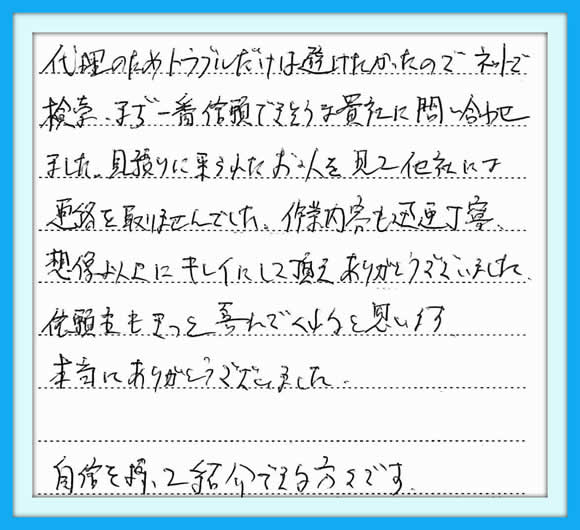 代理のためトラブルだけは避けたかったのでネットで
検索、まず一番信頼できそうな貴社に問い合わせ
ました。見積りに来られたお人を見て他社には
連絡を取りませんでした。作業内容も迅速丁寧、
想像以上にキレイにして頂きありがとうございました。
依頼主もきっと喜んでくれると思います。
本当にありがとうございました。
自信を持って紹介できる方々です。